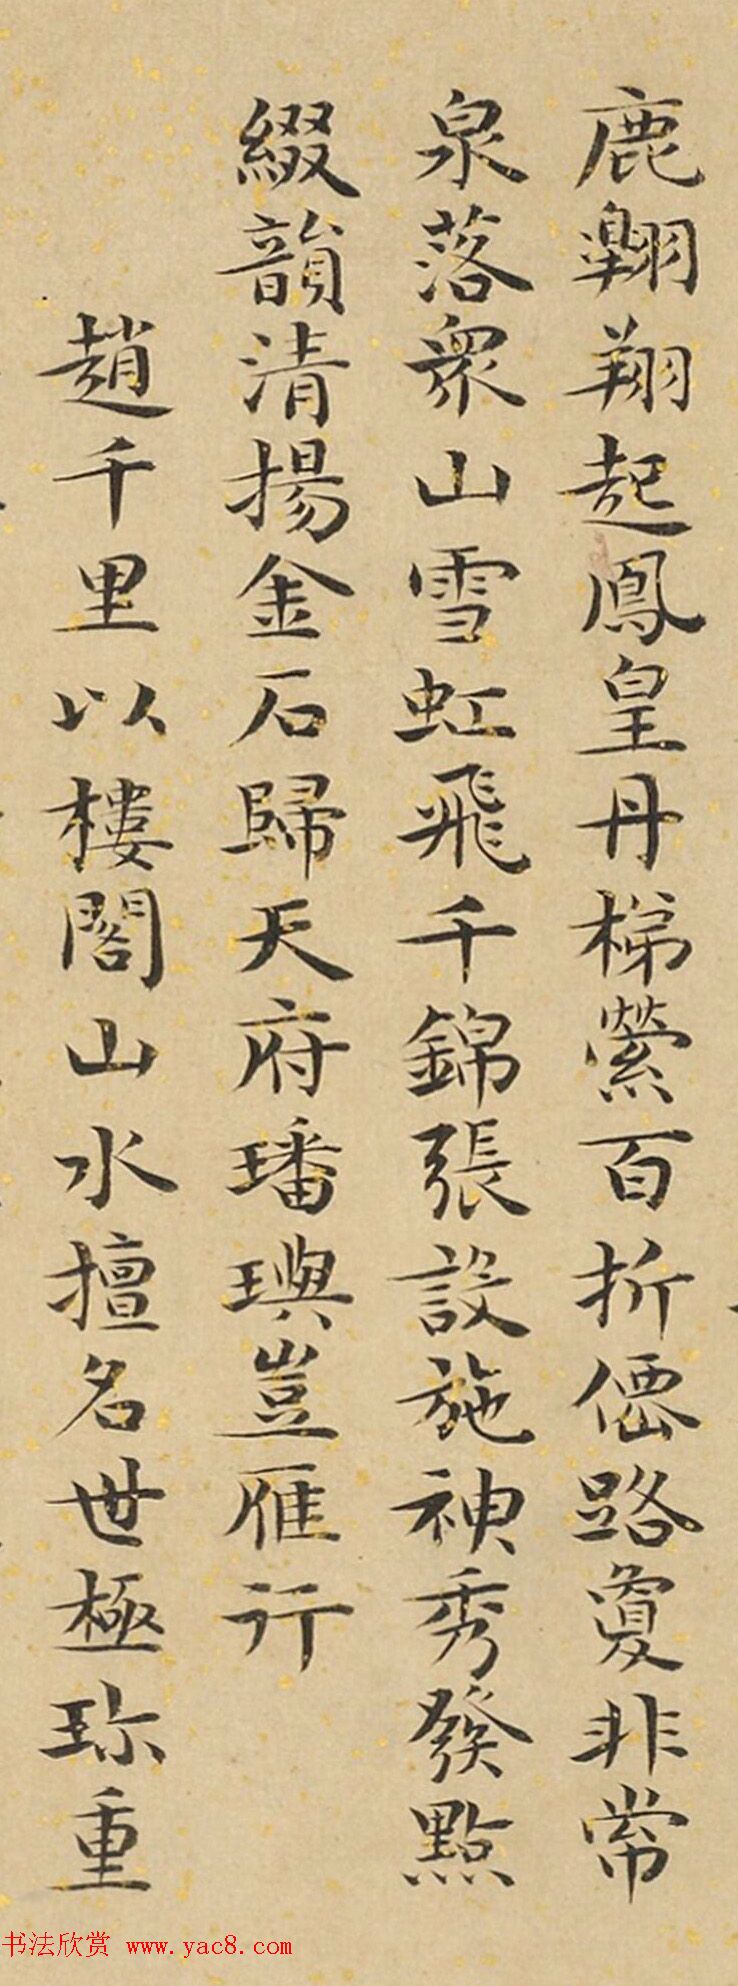 鹿翺翔起鳳皇丹梯縈百折僊路敻非常
泉落衆山雪虹飛千錦張設施神秀發點
綴韻清揚金石歸天府璠璵豈雁行
趙千里以樓閣山水擅名世極珎重
书法欣赏 www.yac8.com